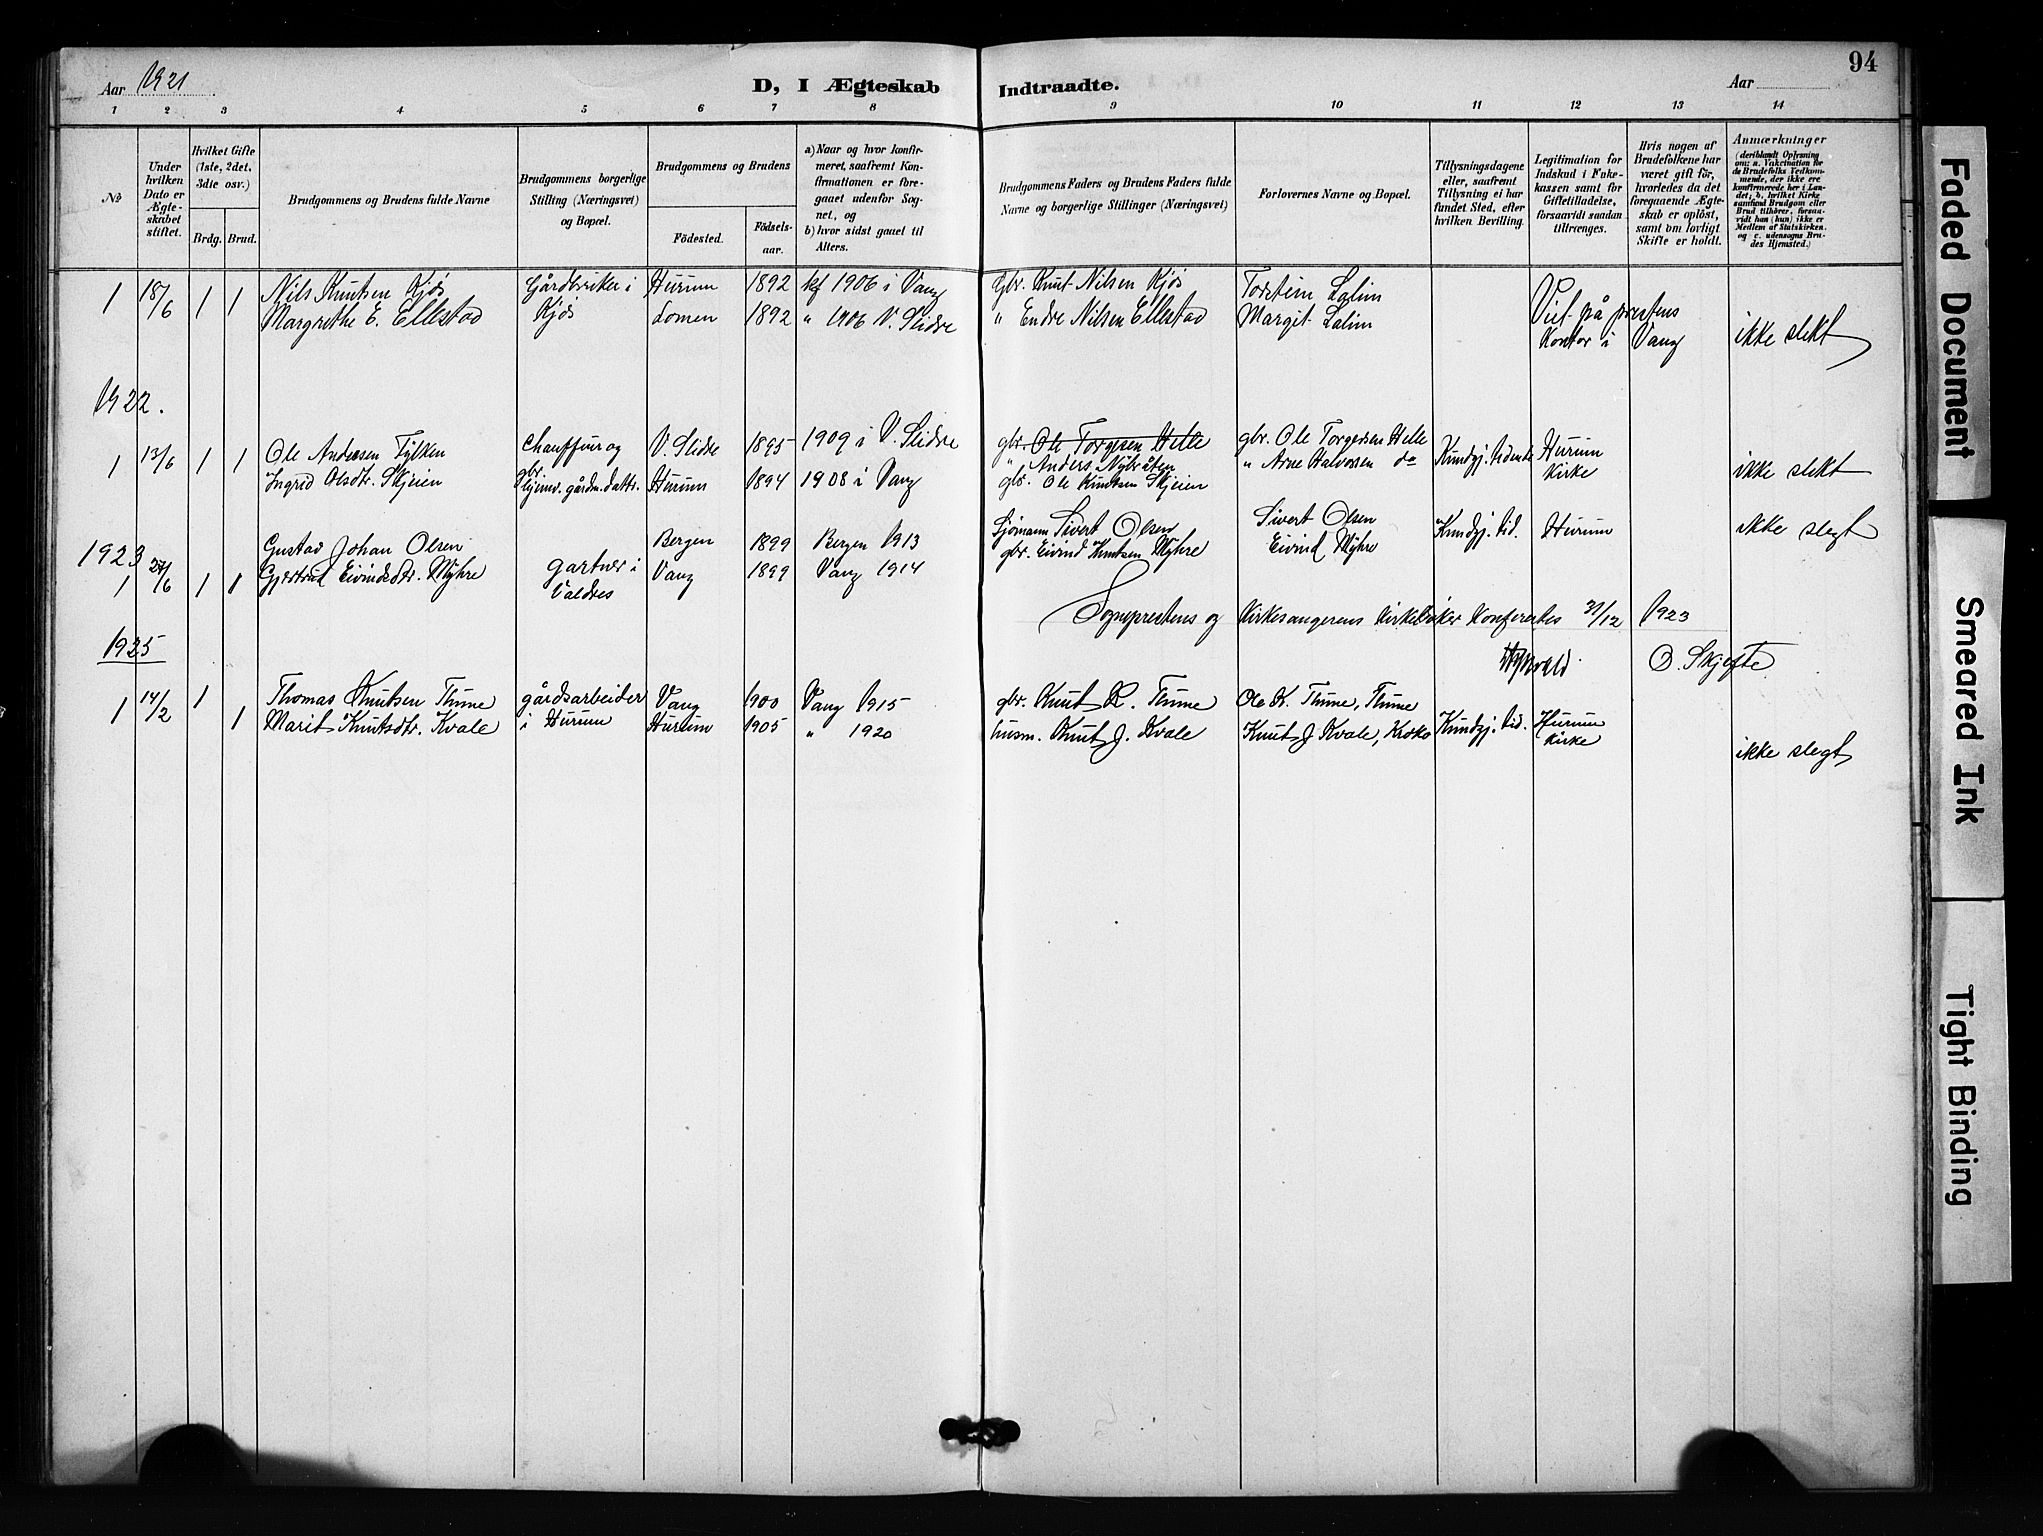 94
Aar 1921
D, I Ægteskab Indtraadte.
Aar
1 2 3 4 5 6 7 8 9 10 11 12 13 14
No
Under hvilken Dato er Ægteskabet stiftet.
Hvilket Gifte (1ste, 2det, 3die osv.)
Brdg. Brud.
Brudgommens og Brudens fulde Navne
Brudgommens borgerlige Stilling (Næringsvei) og Bopæl.
Brudgommens og Brudens
Födested. Födselsaar.
a) Naar og hvor konfirmeret, saafremt Konfirmationen er foregaaet udenfor Sognet, og
b) hvor sidst gaaet til Alters.
Brudgommens Faders og Brudens Faders fulde Navne og borgerlige Stillinger (Næringsvei)
Forlovernes Navne og Bopæl.
Tillysningsdagene eller, saafremt Tillysning ei har fundet Sted, efter hvilken Bevilling.
Legitimation for Indskud i Enkekassen samt for Giftetilladelse, forsaavidt saadan tiltrænges.
Hvis nogen af Brudefolkene har været gift för, hvorledes da det foregaaende Ægteskab er oplöst, samt om lovligt Skifte er holdt.
Anmærkninger
(deriblandt Oplysning om: a. Vakcination for de Brudefolks Vedkommende, der ikke ere konfirmerede her i Landet; b. hvilket Kirkesamfund Brudgom eller Brud tilhörer, forsaavidt han (hun) ikke er Medlem af Statskirken. og c. udensogns Brudes Hjemsted.)
1 18/6 1 1 Nils Knutsen Kjøs Gårdbruker i Hurum 1892 kf 1906 i Vang Gbr. Knut Nilsen Kjøs Torstein Lalim
Margrethe E. Ellestad Kjøs Lomen 1892 " 1906 V. Slidre " Endre Nilsen Ellestad Margit Lalim Viet på prestens
Kontor i Vang ikke slekt
1922.
1 13/6 1 1 Ole Andersen Tylken Chauffør og gbr. V. Slidre 1895 1909 i V. Slidre gbr. Ole Torgersen Helle gbr. Ole Torgersen Helle
" Anders Nybråten " Arne Halvorsen do Hurum Kirke
Ingrid Olsdtr. Skjeien gårdm. dattr. Hurum 1894 1908 i Vang gbr. Ole Knutsen Skjeien ikke slekt
1923
1 27/6 1 1 Gustav Johan Olsen Bergen 1899 Bergen 1913 Sjømann Sivert Olsen Sivert Olsen Kundgj. tid. Hurum ikke slegt
Gjertrud Eivindsdtr. Myhre gartner i Valdres Vang 1899 Vang 1914 gbr. Eivind Knutsen Myhre Eivind Myhre
Sogneprestens og Kirkesangerens Kirkebøker Konferertes 31/12 1923
O. Skjefte
1925
1 14/2 1 1 Thomas Knutsen Thune gårdsarbeider Vang 1900 Vang 1915 gbr. Knut K. Thune Ole K. Thune, Thune
Marit Knutsdtr. Kvale i Hurum Hurum 1905 " 1920 husm. Knut J. Kvale Knut J Kvale, Kundgj. tid. Hurum kirke
ikke slegt
Faded Document
Smeared Ink
Tight Binding